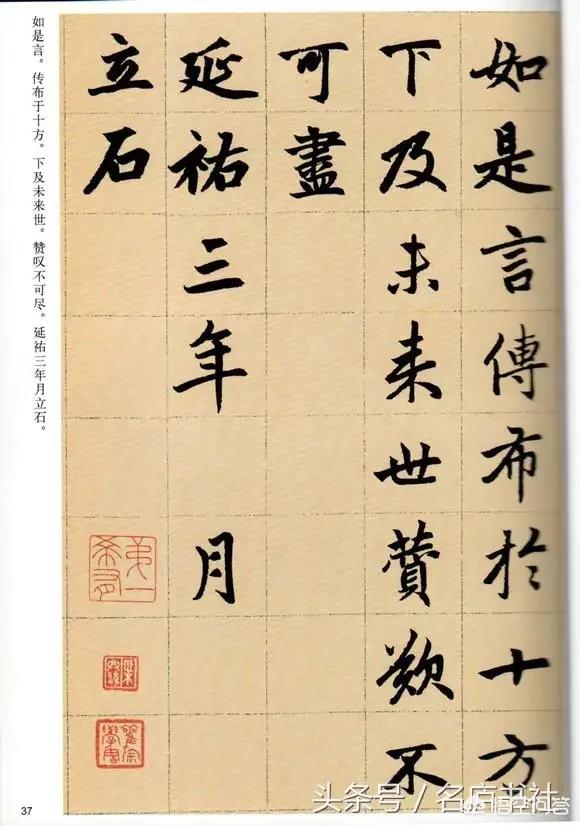 如是言傳布於十方
下及未来世賛歎不
可盡
延祐三年 月
立石
如是言。传布于十方。下及未来世。赞叹不可尽。延祐三年月立石。
37
头条号/名店书社
悟空问答